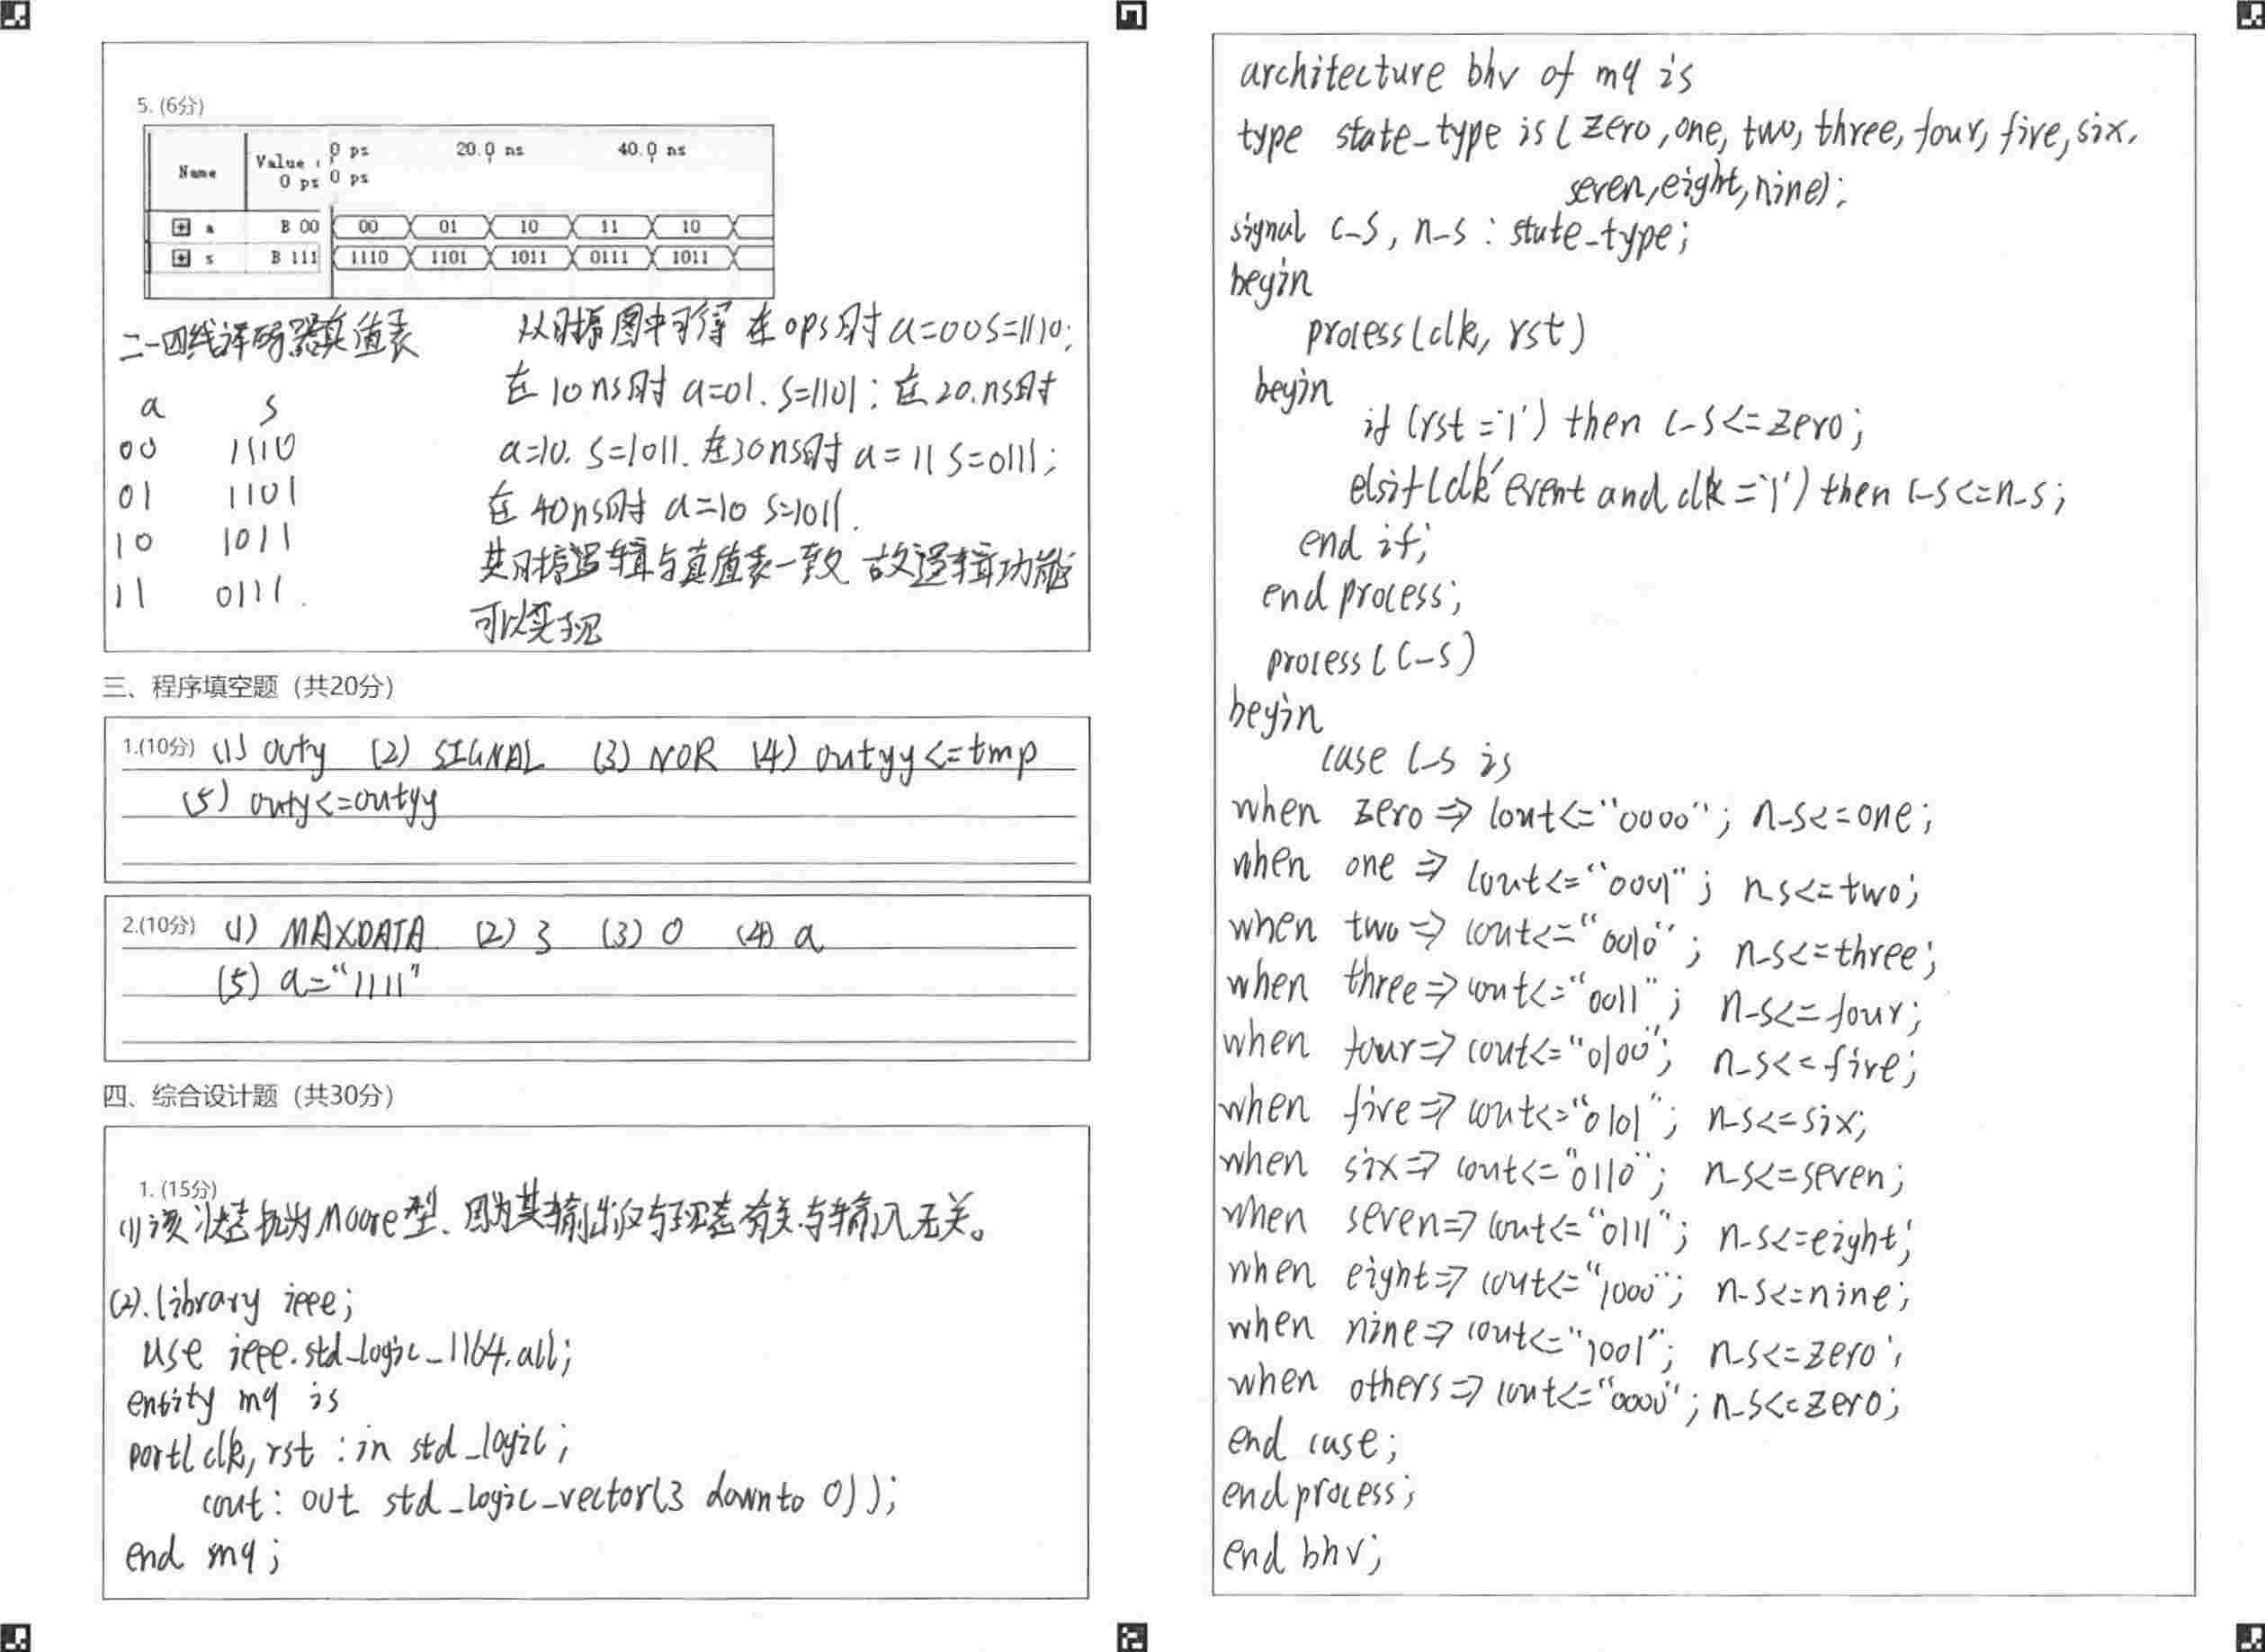 5. (6分)
Name Value : 0 ps 0 ps 20.0 ns 40.0 ns
0 ps
a B 00 00 01 10 11 10
s B 111 1110 1101 1011 0111 1011
二一四线译码器真值表
a s
00 1110
01 1101
10 1011
11 0111.
从时播图中可得 在0ps时 a=00 s=1110;
在10ns时 a=01. s=1101; 在20.ns时
a=10. s=1011. 在30ns时 a=11 s=0111;
在40ns时 a=10 s=1011.
其时播逻辑与真值表一致 故逻辑功能
可以实现
三、程序填空题（共20分）
1.(10分) (1) outy (2) SIGNAL (3) NOR (4) outyy<=tmp
(5) outy<=outyy
2.(10分) (1) MAXDATA (2) 3 (3) 0 (4) a
(5) a="1111"
四、综合设计题（共30分）
1. (15分)
(1)该状态机为Moore型、因为其输出仅与现态有关与输入无关。
(2).library ieee;
use ieee.std_logic_1164.all;
entity mq is
port(clk, rst : in std_logic;
cout: out std_logic_vector(3 downto 0));
end mq;
architecture bhv of mq is
type state_type is (zero,one,two,three,four,five,six,
seven,eight,nine);
signal c_s, n_s : state_type;
begin
process(clk, rst)
begin
if (rst='1') then c_s<=zero;
elsif(clk'event and clk='1') then c_s<=n_s;
end if;
end process;
process(c_s)
begin
case c_s is
when zero=> cout<="0000"; n_s<=one;
when one => cout<="0001"; n_s<=two;
when two=> cout<="0010"; n_s<=three;
when three=> cout<="0011"; n_s<=four;
when four=> cout<="0100"; n_s<=five;
when five=> cout<="0101"; n_s<=six;
when six=> cout<="0110"; n_s<=seven;
when seven=> cout<="0111"; n_s<=eight;
when eight=> cout<="1000"; n_s<=nine;
when nine=> cout<="1001"; n_s<=zero;
when others=> cout<="0000"; n_s<=zero;
end case;
end process;
end bhv;